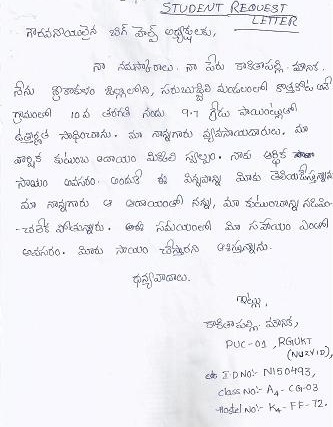 STUDENT REQUEST
LETTER
గౌరవనీయులైన బిగ్ హెల్ప్ అధ్యక్షులకు,
నా నమస్కారాలు. నా పేరు కాశితాపల్లి. మౌనిక.
నేను శ్రీకాకుళం జిల్లాలోని, సరుబుజ్జిలి మండలంలో కొత్తకోట అనే
గ్రామంలో 10 వ తరగతి నందు 9.7 గ్రేడు పాయింట్లతో
ఉత్తీర్ణత సాధించాను. మా నాన్నగారు వ్యవసాయదారులు. మా
వార్షిక కుటుంబ ఆదాయం మిక్కిలి స్వల్పం. నాకు ఆర్థిక
సాయం అవసరం. అందుకే ఈ విన్నపాన్ని మీకు తెలియజేస్తున్నాను
మా నాన్నగారు ఆ ఆదాయంతో నన్ను, మా కుటుంబాన్ని
-చలేక పోతున్నారు. ఈ సమయంలో మీ సహాయం ఎంతో
అవసరం. మీరు సాయం చేస్తారని ఆశిస్తున్నాను.
ధన్యవాదాలు.
ఇట్లు,
కాశితాపల్లి. మౌనిక,
PUC-01, RGUKT
(NUZVID),
I.D NO:- N150493,
class NO:- A4-CG-03
Hostel NO:- K4-FF-72.